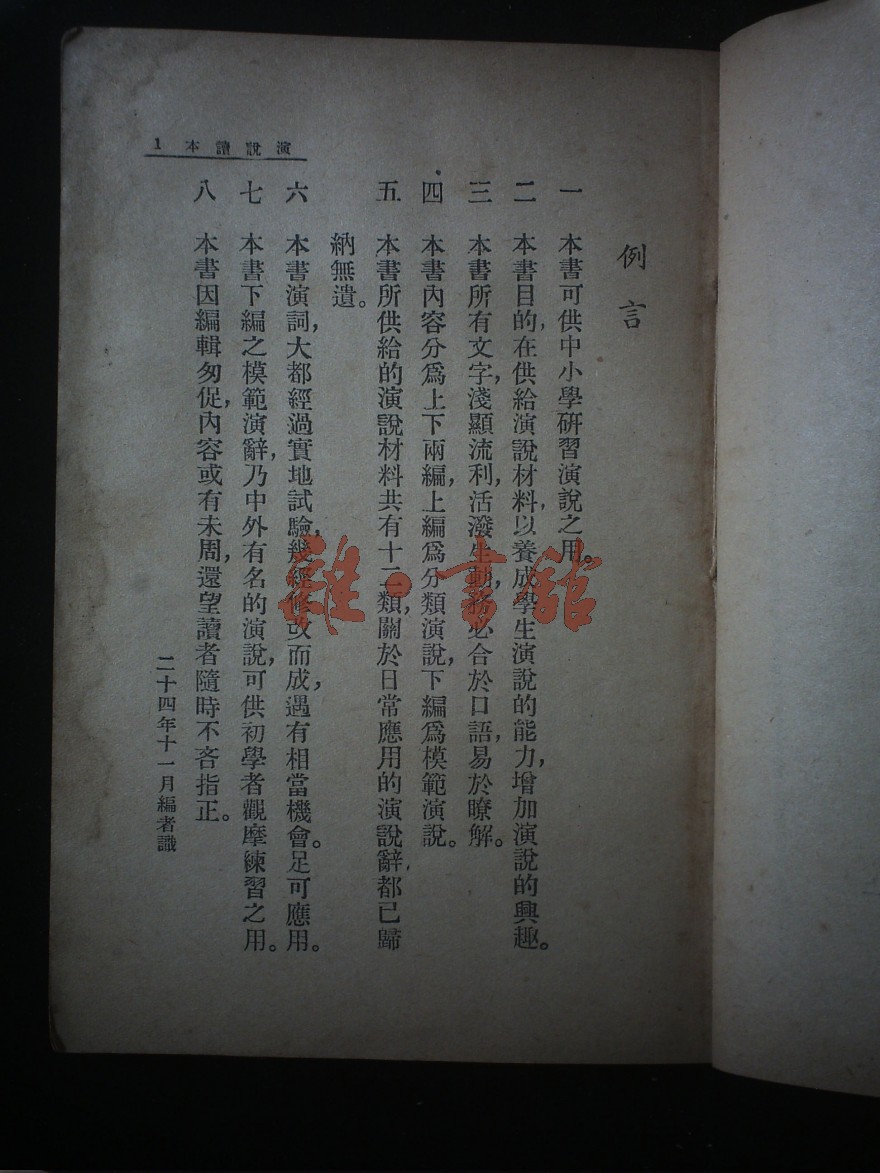 演說讀本 1
例言
一 本書可供中小學研習演說之用。
二 本書目的,在供給演說材料,以養成學生演說的能力,增加演說的興趣。
三 本書所有文字,淺顯流利,活潑生動,務必合於口語,易於暸解。
四 本書內容分爲上下兩編,上編爲分類演說,下編爲模範演說。
五 本書所供給的演說材料共有十二類,關於日常應用的演說辭,都已歸
納無遺。
六 本書演詞,大都經過實地試驗,幾經修改而成,遇有相當機會。足可應用。
七 本書下編之模範演辭,乃中外有名的演說,可供初學者觀摩練習之用。
八 本書因編輯匆促,內容或有未周,還望讀者隨時不吝指正。
二十四年十一月編者識
雜·書館